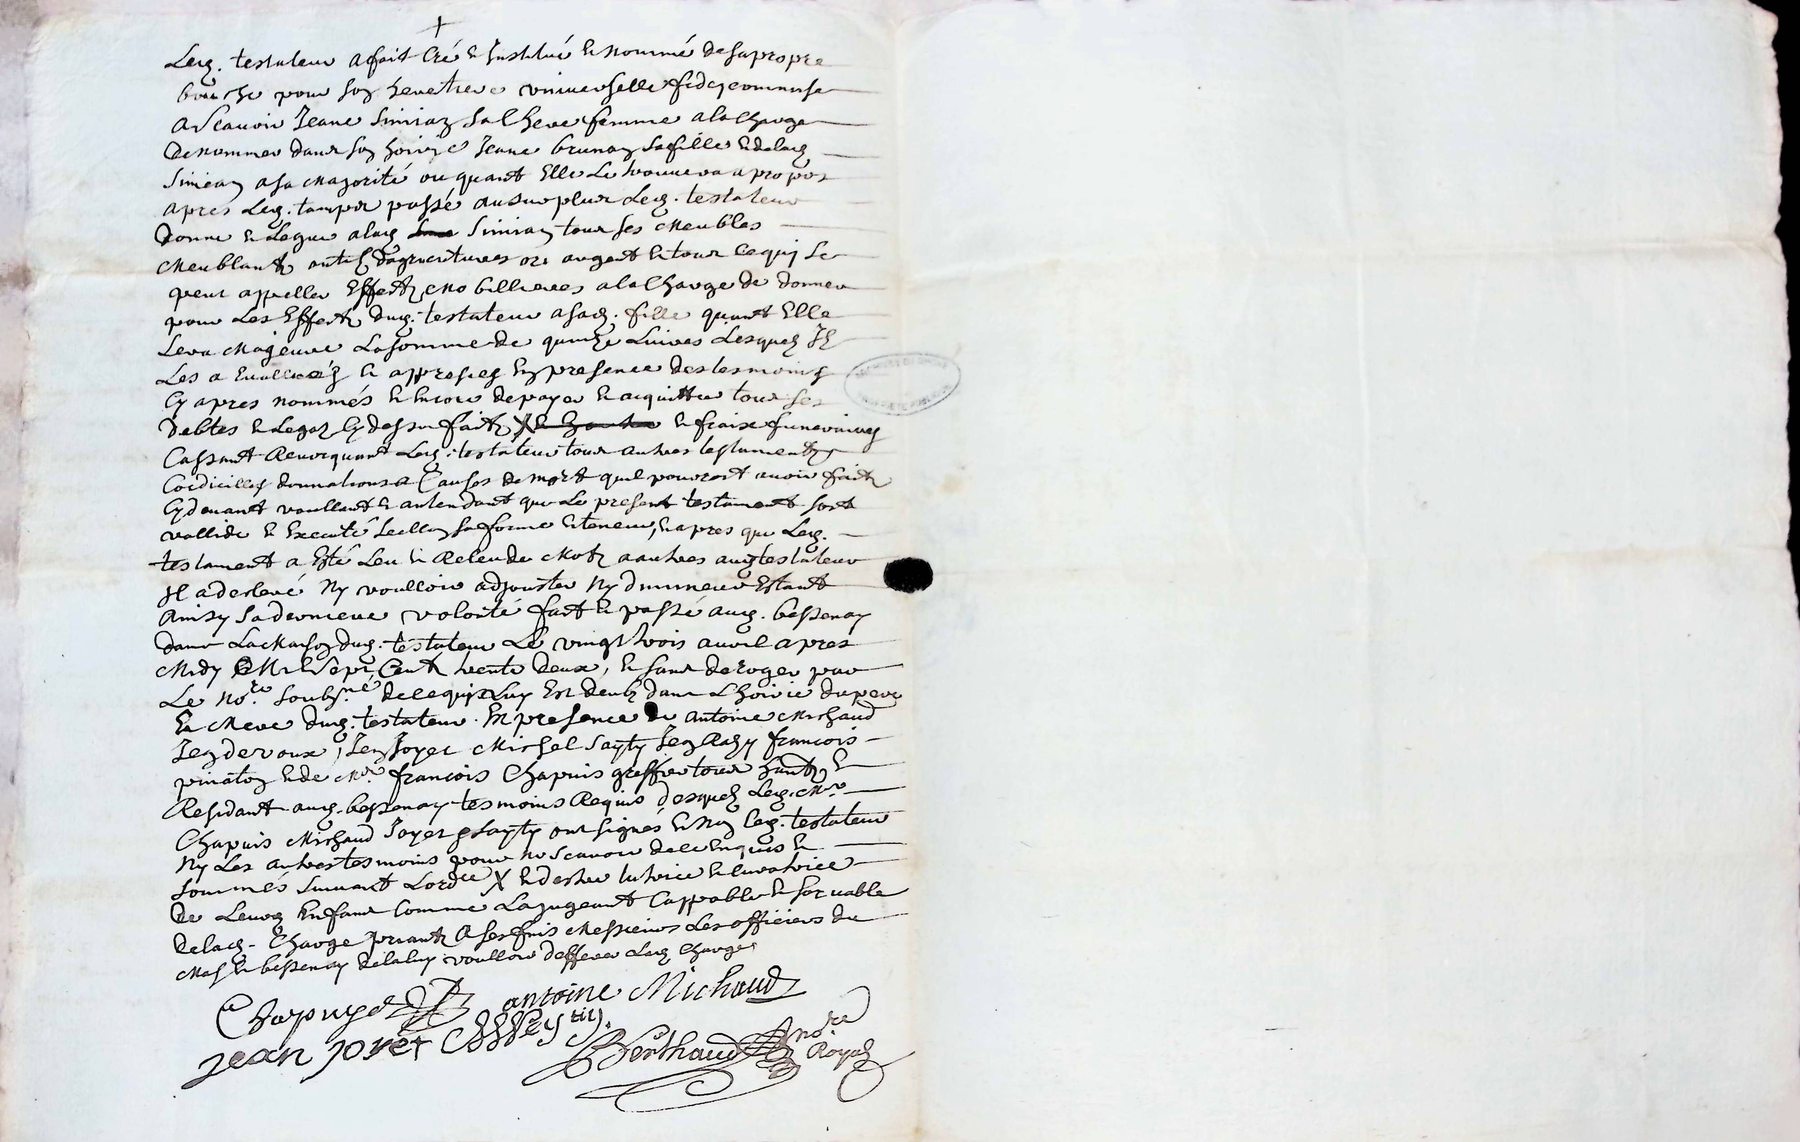 +
Led. testateur a fait Créé et Institué et nommé de sa propre
bouche pour son héretiere universelle fideycommise
a Scavoir Jeane Simian sa Chere femme a la Charge
de nommer dans son hoirie Jeane brunan sa fille et de lad.
Simian a sa Majorité ou quant Elle Le trouvera a propos
apres Led. tamps passé au surplus Led. testateur
donne et Legue a lad. Simian tous ses Meubles
Meublants d'agricultures or argent et tout ce qui se
peut appeller Effects Mobillieres a la Charge de donner
pour Les Effects dud. testateur a sad. fille quant Elle
sera Majeure La somme de quinze Livres Lesquels Il
Les a et appreciés En presence des tesmoins
Cy apres nommés et Encore de payer et acquitter tous ses
debtes et Legats Cy dessus faits X et fraix funeraires
Cassant Revocquant Led. testateur tous autres testaments
Codicilles donnations a Causes de mort quil pouroit avoir faits
Cy devant voullant et antendant que Le present testament sort
vallide et Executé Sellon sa forme et teneur, et apres que Led.
testament a Esté Leu et Releu de Mots a autres aud. testateur
Il a desclaré Ny voulloir adjouster Ny diminuer Estant
Ainsy sa derniere volonté fait et passé aud. bessenay
dans La Maison dud. testateur Le vingt trois avril apres
Midy Mil Sept Cent trente deux, et sans deroger par
Le No.re soubs.né de ce qui Luy Est deub dans L'hoirie du pere
Et Mere dud. testateur. En presence de Antoine Michaud
Jean devoux, Jean Joyet Michel Sayty Jean Razy francois
pinaton et de M.re francois Chapuis greffier tous hants et
Residant aud. bessenay tesmoins Requis desquels Led. M.re
Chapuis Michaud Joyet et Sayty ont signés et Non Led. testateur
Ny Les autres tesmoins pour ne Scavoir de ce Enquis et
sommés suivant Lord.ce X et d'estre tutrice et curatrice
de Leurs Enfans Comme La jugeant Cappable et
de lad. Charge priant a ses fins Messieurs Les officiers de
et bessenay de luy voulloir defferer Lad. Charge
Chapuys antoine Michaud
jean joyet
Berthaud no.re
Royal